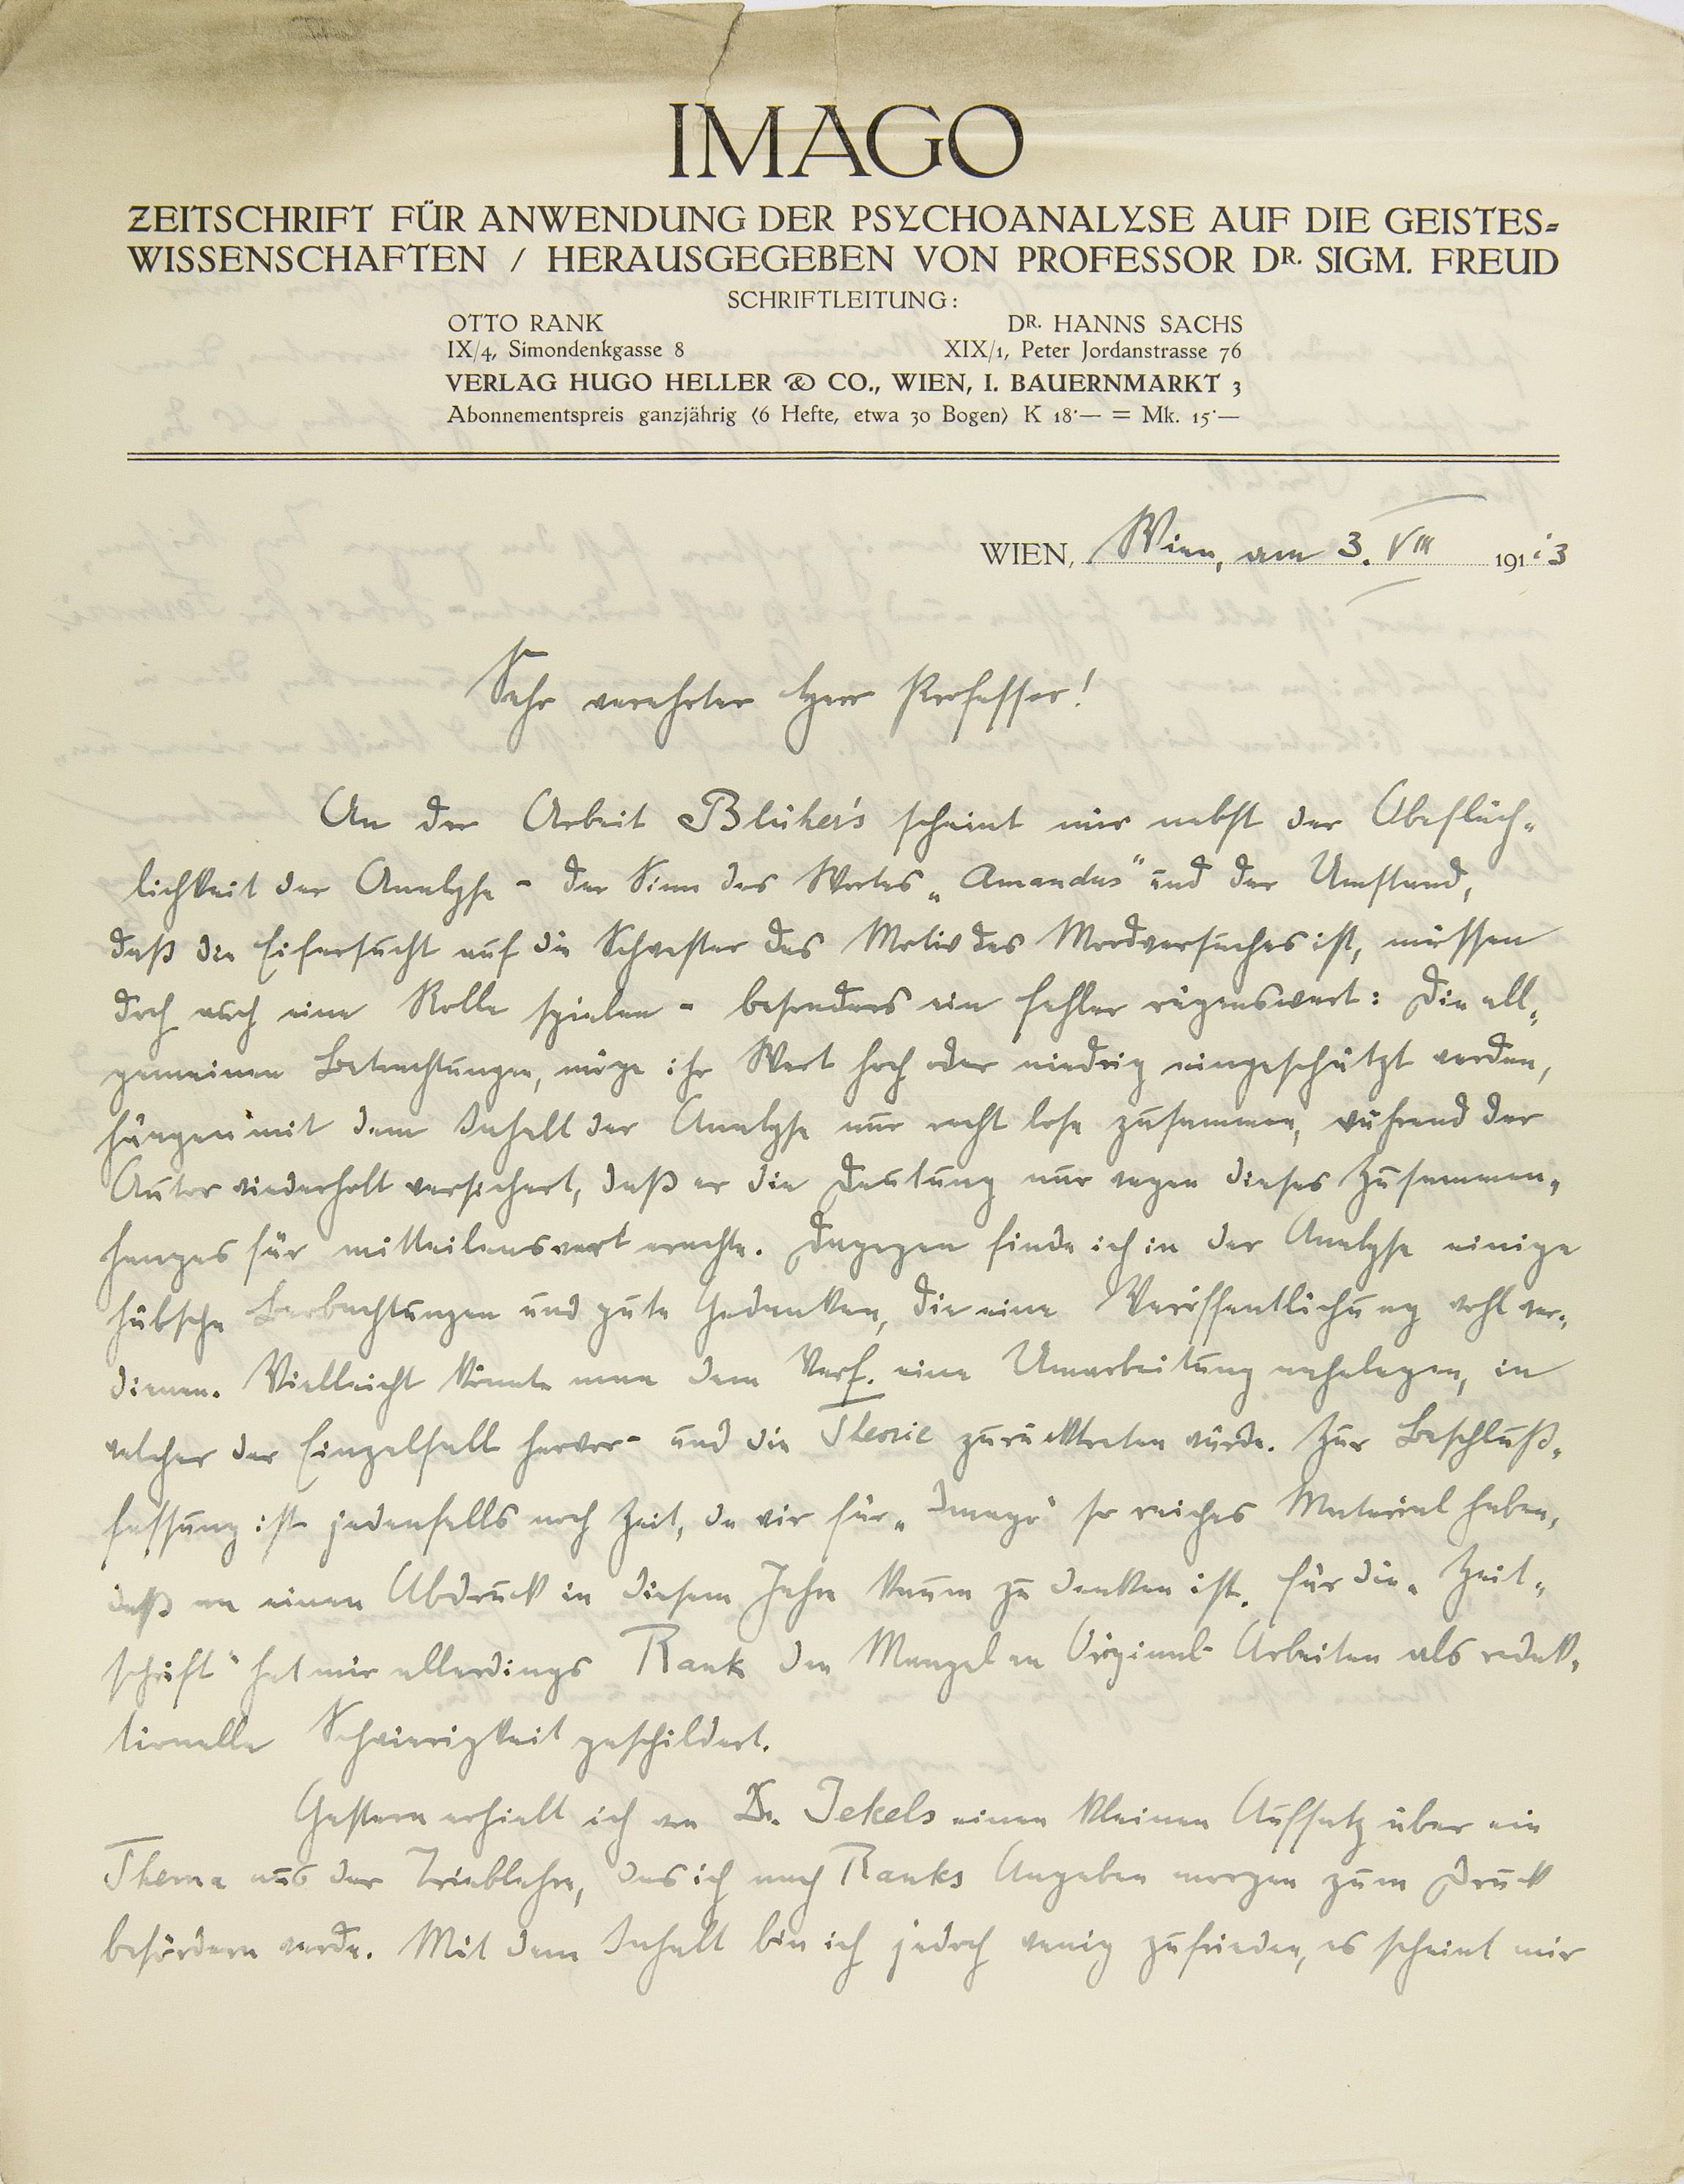 IMAGO
ZEITSCHRIFT FÜR ANWENDUNG DER PSYCHOANALYSE AUF DIE GEISTES-
WISSENSCHAFTEN / HERAUSGEGEBEN VON PROFESSOR DR. SIGM. FREUD
SCHRIFTLEITUNG:
OTTO RANK DR. HANNS SACHS
IX/4, Simondenkgasse 8 XIX/1, Peter Jordanstrasse 76
VERLAG HUGO HELLER & CO., WIEN, I. BAUERNMARKT 3
Abonnementspreis ganzjährig (6 Hefte, etwa 30 Bogen) K 18·— = Mk. 15·—
WIEN, Wien, am 3. VIII 1913
Sehr verehrter Herr Professor!
An der Arbeit Blüher's scheint mir nebst der Obefläch-
lichkeit der Analyse - der Sinn des Wortes „Amandus" und der Umstand,
daß die Eifersucht auf die Schwester das Motiv des Mordversuches ist, müssen
doch auch eine Rolle spielen - besonders ein Fehler rügenswert: Die all-
gemeinen Betrachtungen, möge ihr Wert hoch oder niedrig eingeschätzt werden,
hängen mit dem Inhalt der Analyse nur recht lose zusammen, während der
Autor wiederholt versichert, daß er die Deutung nur wegen dieses Zusammen-
hanges für mitteilenswert erachte. Dagegen finde ich in der Analyse einige
hübsche Beobachtungen und gute Gedanken, die eine Veröffentlichung wohl ver-
dienen. Vielleicht könnte man dem Verf. eine Umarbeitung nahelegen, in
welcher der Einzelfall hervor- und die Theorie zurücktreten würde. Zur Beschluß-
fassung ist jedenfalls noch Zeit, da wir für „Imago" so reiches Material haben,
daß an einen Abdruck in diesem Jahre kaum zu denken ist. Für die „Zeit-
schrift" hat mir allerdings Rank den Mangel an Original-Arbeiten als redak-
tionelle Schwierigkeit geschildert.
Gestern erhielt ich von Dr. Jekels einen kleinen Aufsatz über ein
Thema aus der Trieblehre, das ich nach Ranks Angaben morgen zum Druck
befördern werde. Mit dem Inhalt bin ich jedoch wenig zufrieden, es scheint mir